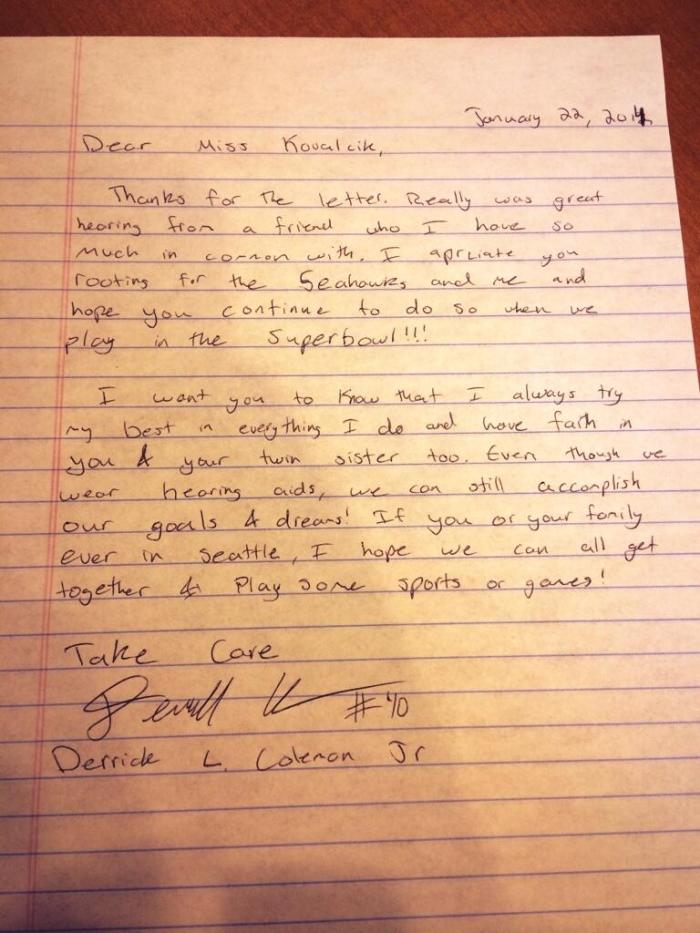 January 22, 2014
Dear Miss Kovalcik,
Thanks for the letter. Really was great
hearing from a friend who I have so
much in common with. I apriciate you
rooting for the Seahawks and me and
hope you continue to do so when we
play in the Superbowl!!!
I want you to know that I always try
my best in everything I do and have faith in
you & your twin sister too. Even though we
wear hearing aids, we can still accomplish
our goals & dreams! If you or your family
ever in Seattle, I hope we can all get
together & play some sports or games!
Take Care
#40
Derrick L. Coleman Jr